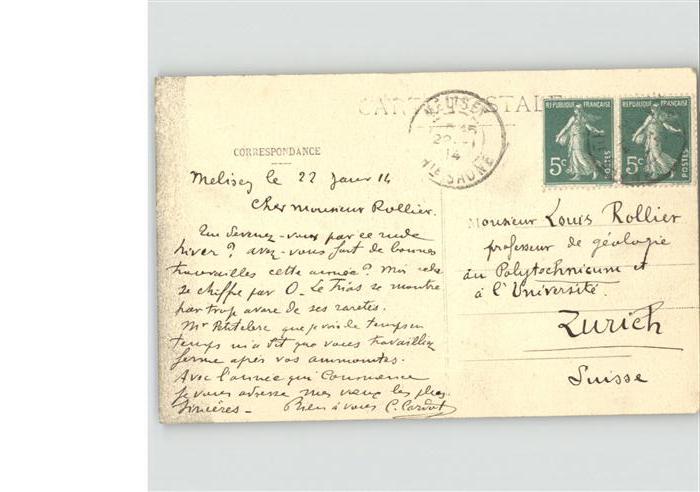 CARTE POSTALE
MELISEY
22 - 1
14
HTE SAÔNE
REPUBLIQUE FRANÇAISE
5c
POSTES
REPUBLIQUE FRANÇAISE
5c
POSTES
CORRESPONDANCE
Melisey le 22 Janr 14
Cher monsieur Rollier.
Que devenez-vous par ce rude
hiver? avez-vous fait de bonnes
travailles cette année? Moi cela
se chiffre par 0 - Le Trias se montre
par trop avare de ses raretés.
Mr Petitclerc que je vois de temps en
temps m'a dit que vous travaillez
ferme après vos ammonites.
Avec l'année qui commence
je vous adresse mes vœux les plus
sincères - Bien à vous C. Cardot
Monsieur Louis Rollier
professeur de géologie
au Polytechnicum et
à l'Université.
Zurich
Suisse